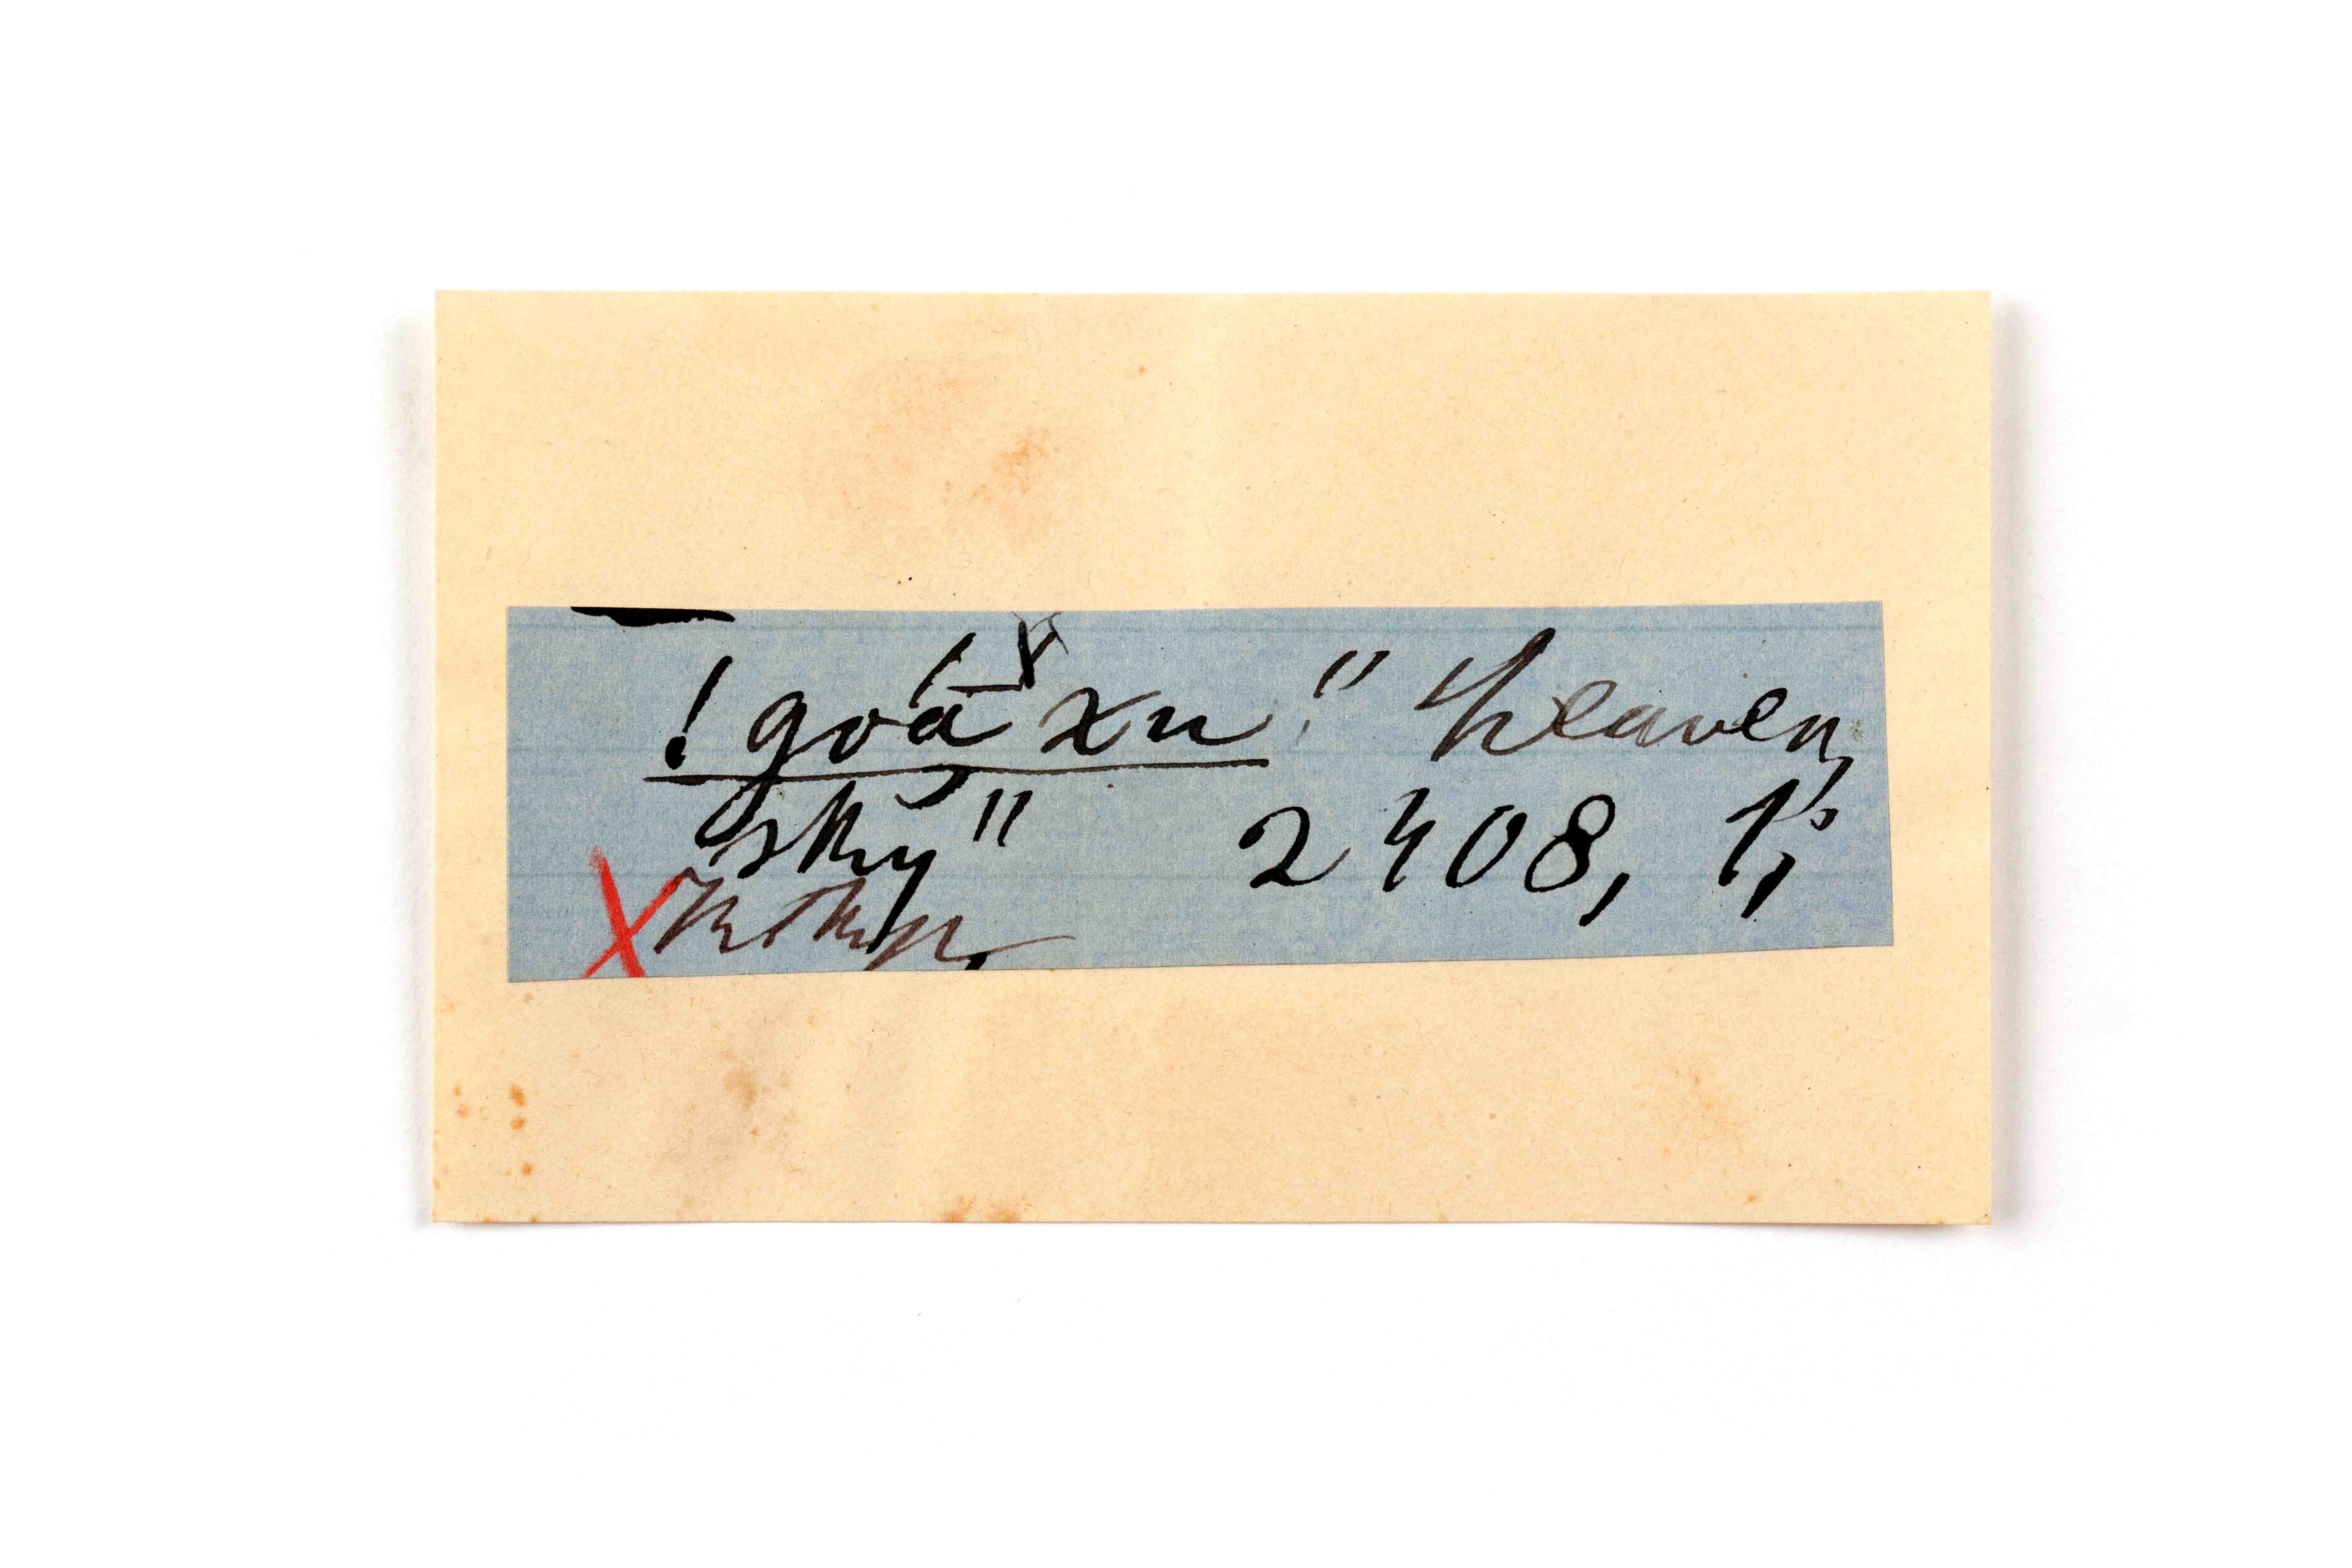 !góā̆xu " heaven,
sky" 2408, 1';
X